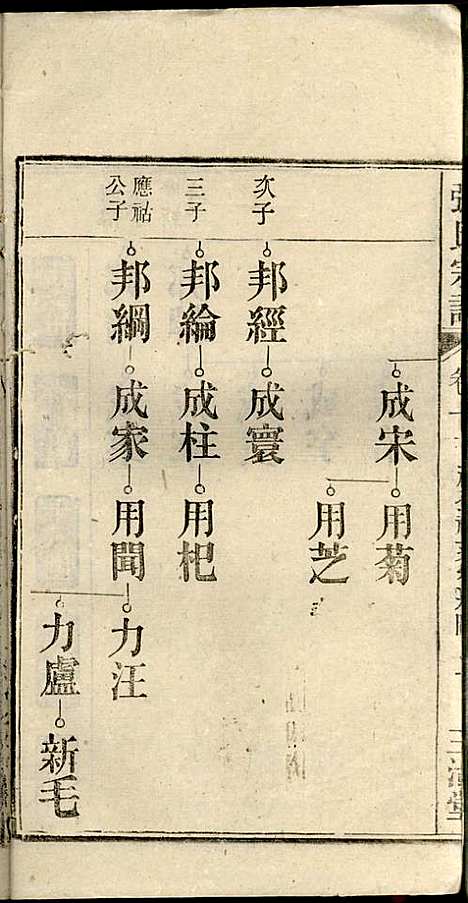 成宋用菊
用芝
次子
邦經成寰
三子
邦綸成柱用杞
應祜
公子
邦綱成家用聞力汪
力廬新毛